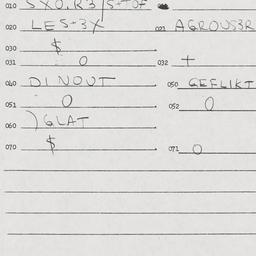 010 SXO.R3/S-TOF
020 LES-3X 021 AGROUS3R
030 $
031 0 032 +
040 DINOUT 050 GEFLIKT
051 0 052 0
060 )GLAT
070 $ 071 0